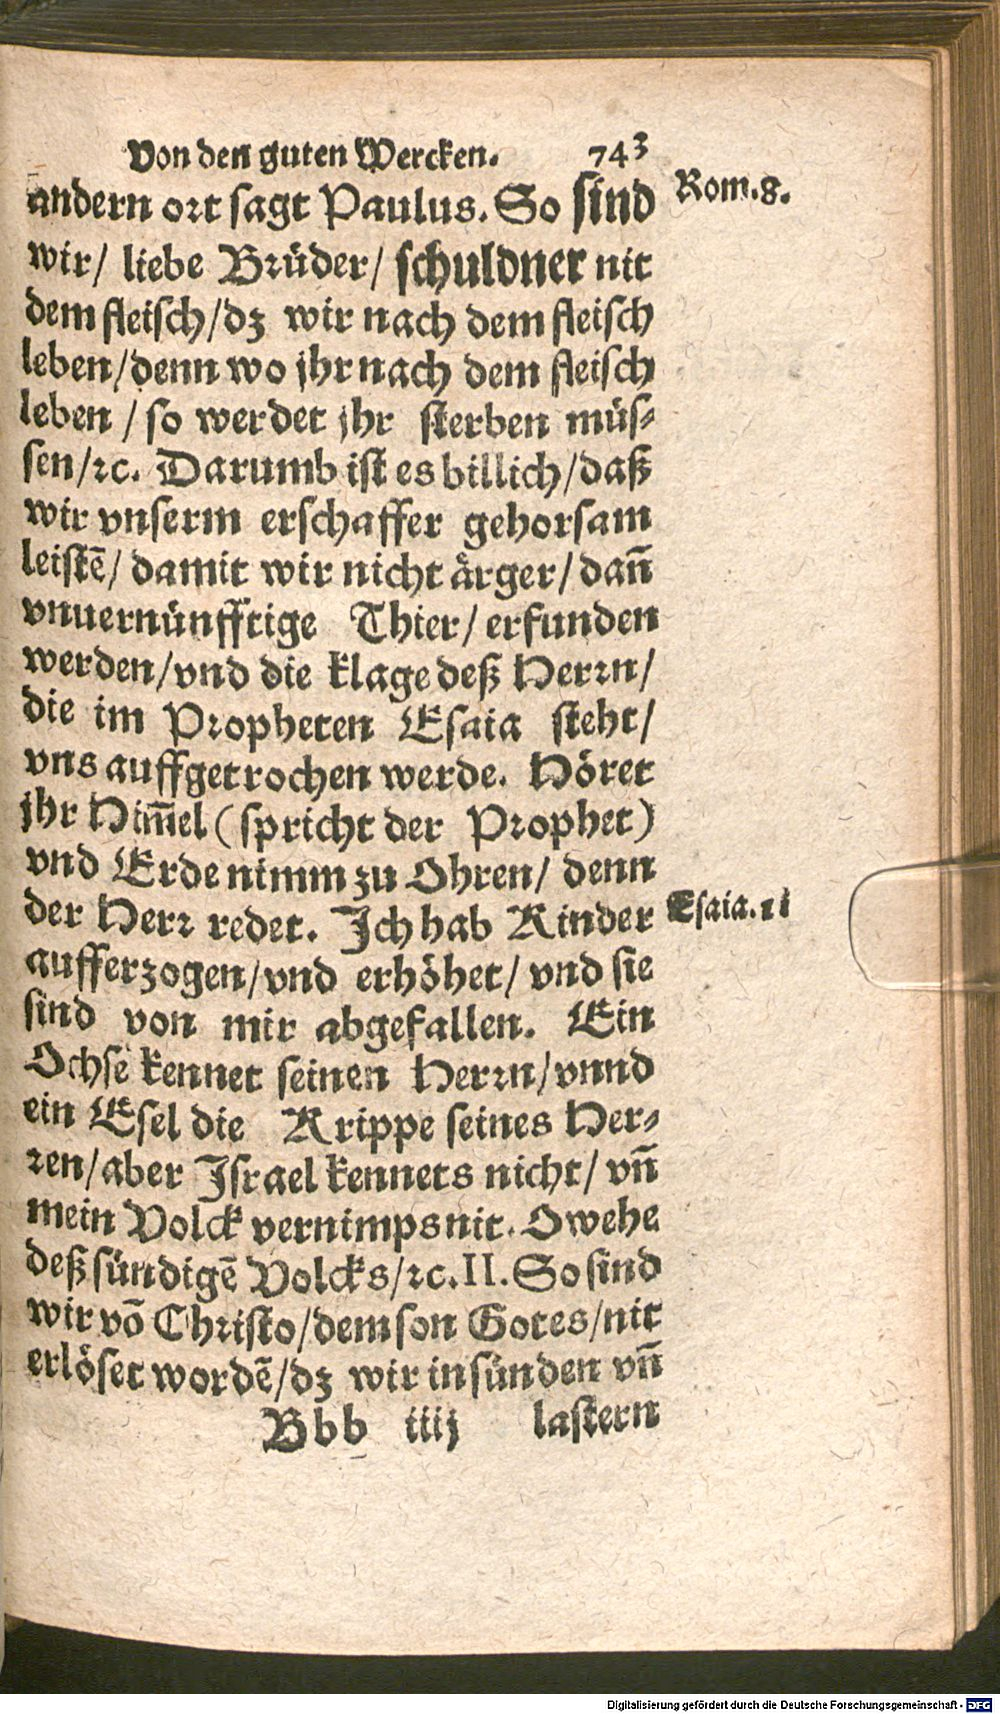 Von den guten Wercken. 743
andern ort sagt Paulus. So sind
Rom.8.
wir/ liebe Brüder/ schuldner nit
dem fleisch/dz wir nach dem fleisch
leben/denn wo jhr nach dem fleisch
leben / so werdet jhr sterben müs-
sen/rc. Darumb ist es billich/daß
wir vnserm erschaffer gehorsam
leistē/ damit wir nicht ärger/ dañ
vnuernünfftige Thier/ erfunden
werden/vnd die klage deß Herrn/
die im Propheten Esaia steht/
vns auffgetrochen werde. Höret
jhr Him̃el (spricht der Prophet)
vnd Erde nimm zu Ohren/ denn
der Herr redet. Ich hab Kinder
Esaia.11
aufferzogen/vnd erhöhet/ vnd sie
sind von mir abgefallen. Ein
Ochse kennet seinen Herrn/vnnd
ein Esel die Krippe seines Her-
ren/aber Israel kennets nicht/ vñ
mein Volck vernimps nit. O wehe
deß sündigē Volcks/rc.II. So sind
wir võ Christo/dem son Gotes/nit
erlöset wordē/dz wir in sünden vñ
Bbb iiij lastern
Digitalisierung gefördert durch die Deutsche Forschungsgemeinschaft - DFG